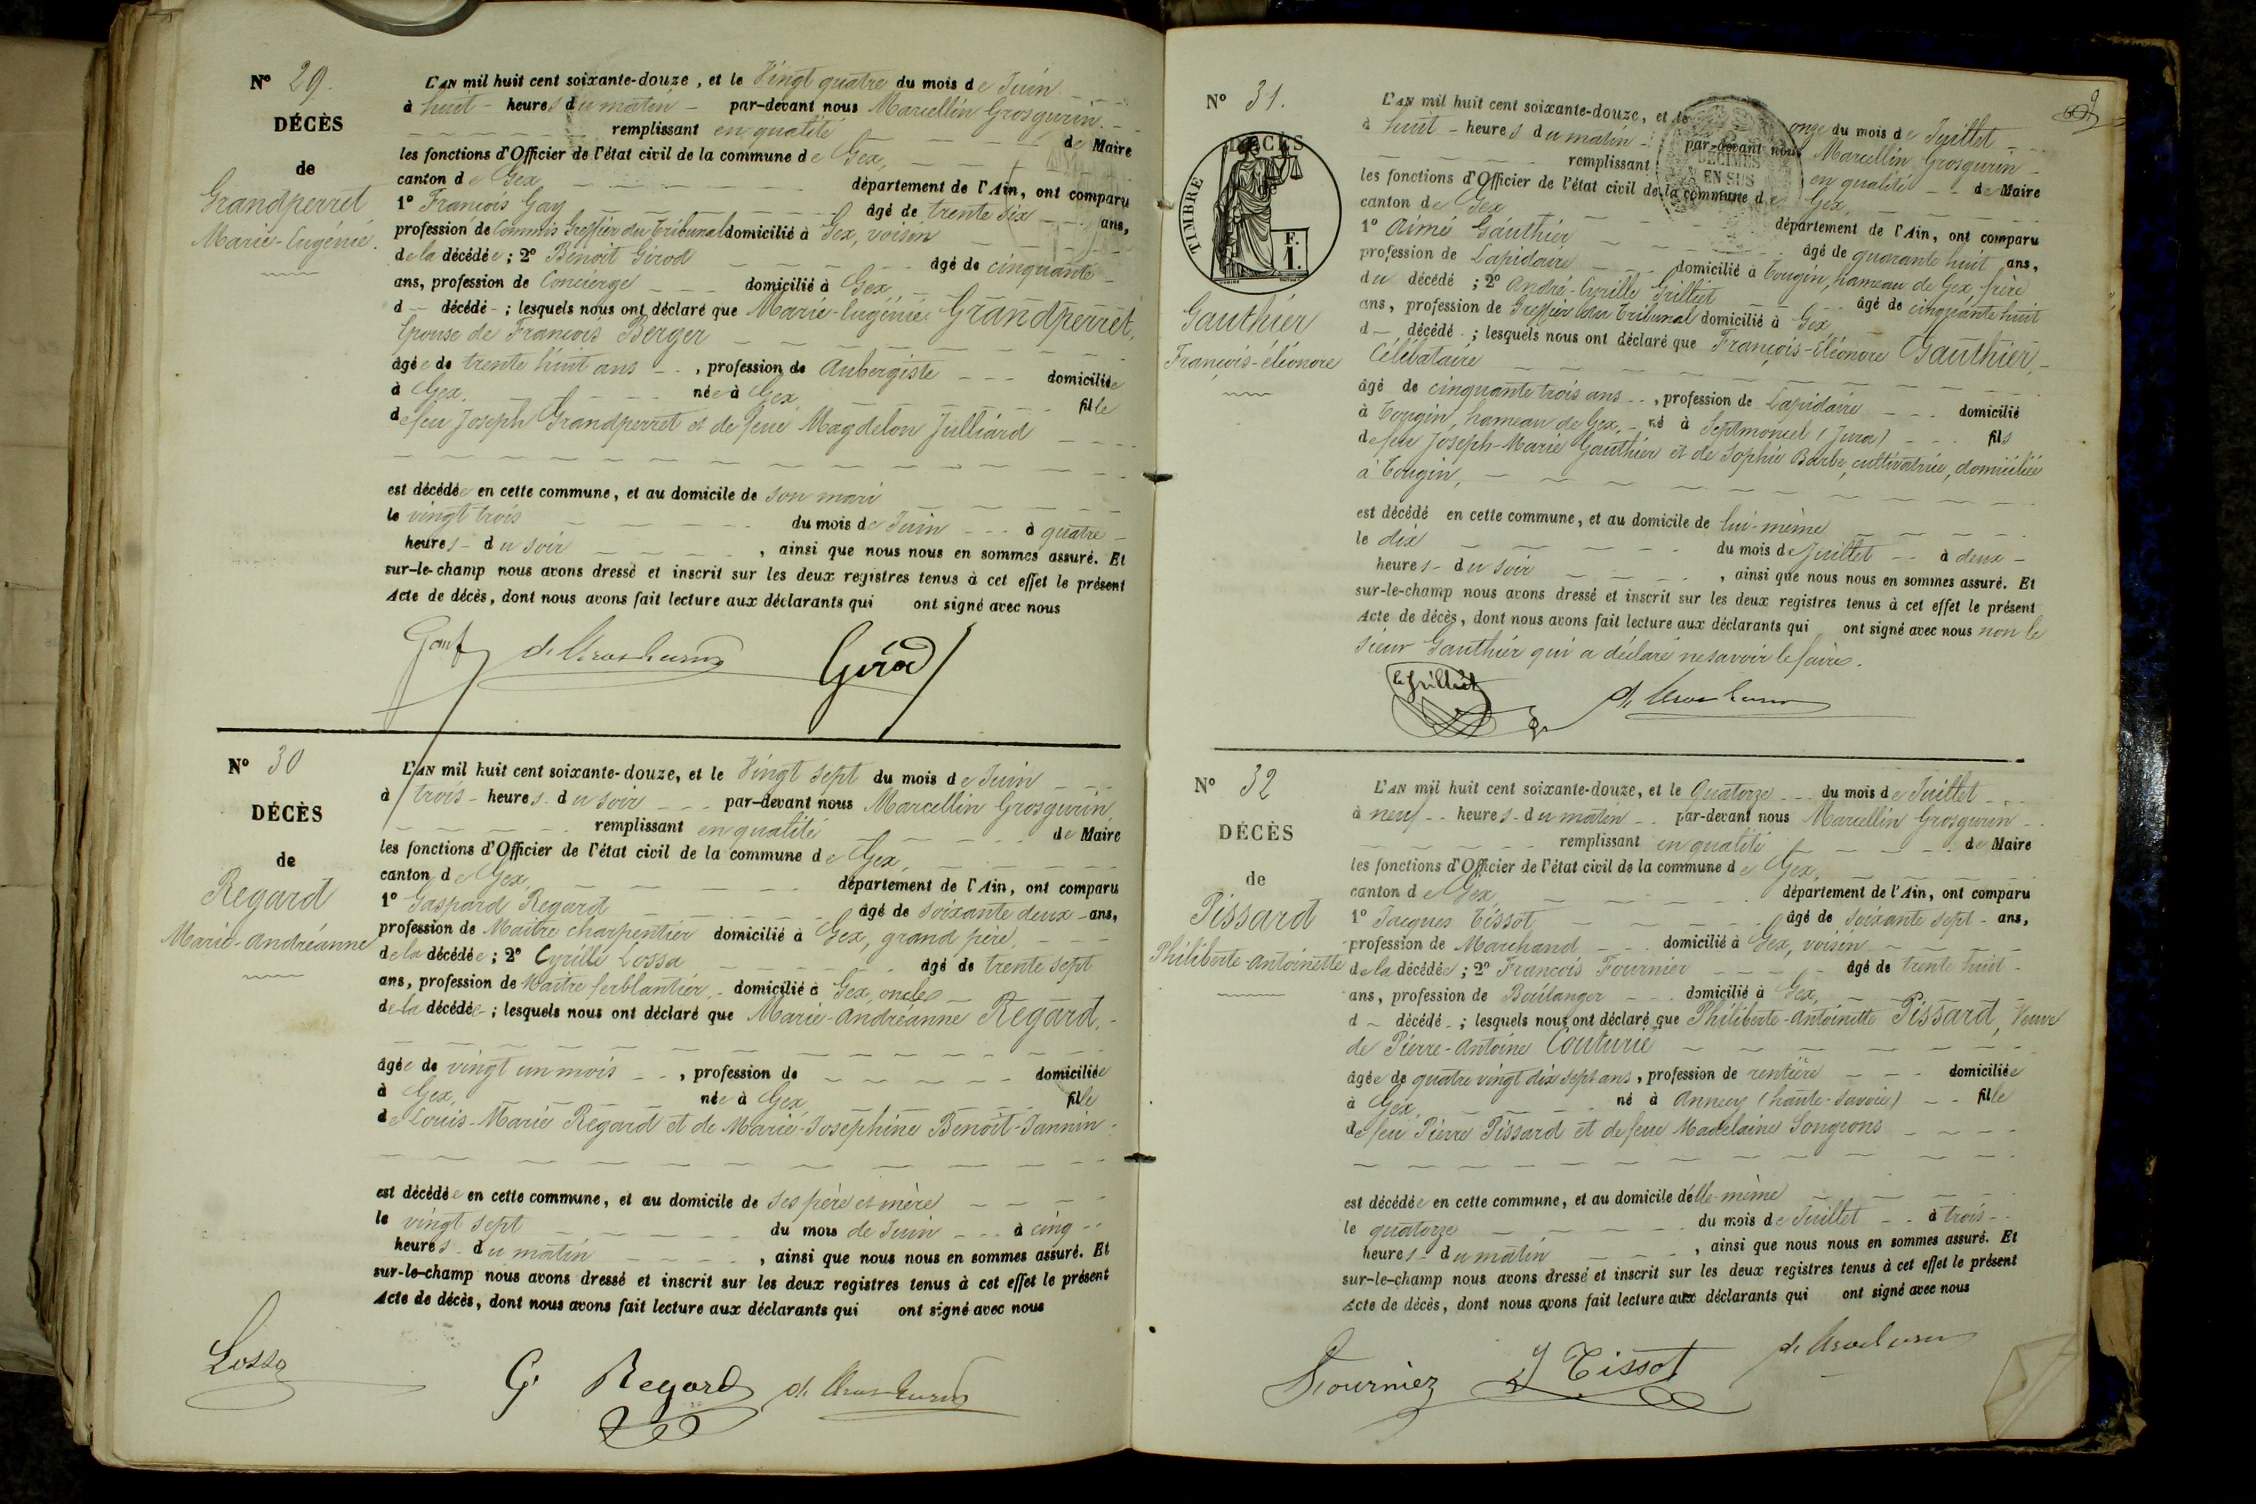 N° 29.
DÉCÈS
de
Grandperret
Marie-Eugénie.
L'AN mil huit cent soixante-douze, et le Vingt quatre du mois de Juin
à huit heures du matin par-devant nous Marcellin Grosgurin
remplissant en qualité de Maire
les fonctions d'Officier de l'état civil de la commune de Gex,
canton de Gex, département de l'Ain, ont comparu
1° François Gay âgé de trente six ans,
profession de Commis Greffier du Tribunal domicilié à Gex, voisin
de la décédée ; 2° Benoit Girod âgé de cinquante
ans, profession de Concierge domicilié à Gex,
d décédé ; lesquels nous ont déclaré que Marie-Eugénie Grandperret,
Epouse de François Berger
âgée de trente huit ans , profession de Aubergiste domiciliée
à Gex, née à Gex, fille
de feu Joseph Grandperret et de feue Magdelon Julliard
est décédée en cette commune, et au domicile de son mari
le vingt trois du mois de Juin à quatre
heures du soir , ainsi que nous nous en sommes assuré. Et
sur-le-champ nous avons dressé et inscrit sur les deux registres tenus à cet effet le présent
Acte de décès, dont nous avons fait lecture aux déclarants qui ont signé avec nous
Girod
N° 30
DÉCÈS
de
Regard
Marie-Andréanne
L'AN mil huit cent soixante-douze, et le Vingt sept du mois de Juin
à trois heures du soir par-devant nous Marcellin Grosgurin,
remplissant en qualité de Maire
les fonctions d'Officier de l'état civil de la commune de Gex,
canton de Gex, département de l'Ain, ont comparu
1° Gaspard Regard âgé de soixante deux ans,
profession de Maître charpentier domicilié à Gex, grand père,
de la décédée ; 2° Cyrille Lossa âgé de trente sept
ans, profession de Maître ferblantier, domicilié à Gex, oncle
de la décédée ; lesquels nous ont déclaré que Marie-Andréanne Regard,
âgée de vingt un mois , profession de domiciliée
à Gex, née à Gex, fille
de Louis-Marie Regard et de Marie-Josephine Benoît-Jannin.
est décédée en cette commune, et au domicile de ses père et mère
le vingt sept du mois de Juin à cinq
heures du matin , ainsi que nous nous en sommes assuré. Et
sur-le-champ nous avons dressé et inscrit sur les deux registres tenus à cet effet le présent
Acte de décès, dont nous avons fait lecture aux déclarants qui ont signé avec nous
Lossa
G. Regard
N° 31.
DÉCÈS
de
TIMBRE
F.
1.
Gauthier
François-éléonore
L'AN mil huit cent soixante-douze, et le onze du mois de Juillet
DÉCIMES
EN SUS
à huit heures du matin par-devant nous Marcellin Grosgurin
remplissant en qualité de Maire
les fonctions d'Officier de l'état civil de la commune de Gex,
canton de Gex, département de l'Ain, ont comparu
1° Aimé Gauthier âgé de quarante huit ans,
profession de Lapidaire domicilié à Tougin, hameau de Gex, frère
du décédé ; 2° André-Cyrille Grilliet âgé de cinquante huit
ans, profession de Greffier du Tribunal domicilié à Gex,
d décédé ; lesquels nous ont déclaré que François-Eléonore Gauthier,
Célibataire
âgé de cinquante trois ans , profession de Lapidaire domicilié
à Tougin, hameau de Gex, né à Septmoncel (Jura) fils
de feu Joseph-Marie Gauthier et de Sophie Barbe, cultivatrice, domiciliée
à Tougin,
est décédé en cette commune, et au domicile de lui-même
le dix du mois de Juillet à deux
heures du soir , ainsi que nous nous en sommes assuré. Et
sur-le-champ nous avons dressé et inscrit sur les deux registres tenus à cet effet le présent
Acte de décès, dont nous avons fait lecture aux déclarants qui ont signé avec nous non le
sieur Gauthier qui a déclaré ne savoir le faire.
Grilliet
N° 32
DÉCÈS
de
Pissard
Philiberte-Antoinette
L'AN mil huit cent soixante-douze, et le Quatorze du mois de Juillet
à neuf heures du matin par-devant nous Marcellin Grosgurin
remplissant en qualité de Maire
les fonctions d'Officier de l'état civil de la commune de Gex,
canton de Gex, département de l'Ain, ont comparu
1° Jacques Tissot âgé de soixante sept ans,
profession de Marchand domicilié à Gex, voisin
de la décédée ; 2° François Fournier âgé de trente huit
ans, profession de Boulanger domicilié à Gex,
d décédé ; lesquels nous ont déclaré que Philiberte-Antoinette Pissard, Veuve
de Pierre-Antoine Couturié
âgée de quatre vingt dix sept ans, profession de rentière domiciliée
à Gex, né à Annecy (haute-Savoie) fille
de feu Pierre Pissard et de feue Madelaine Songeons
est décédée en cette commune, et au domicile d'elle-même
le quatorze du mois de Juillet à trois
heures du matin , ainsi que nous nous en sommes assuré. Et
sur-le-champ nous avons dressé et inscrit sur les deux registres tenus à cet effet le présent
Acte de décès, dont nous avons fait lecture aux déclarants qui ont signé avec nous
Fournier
J Tissot